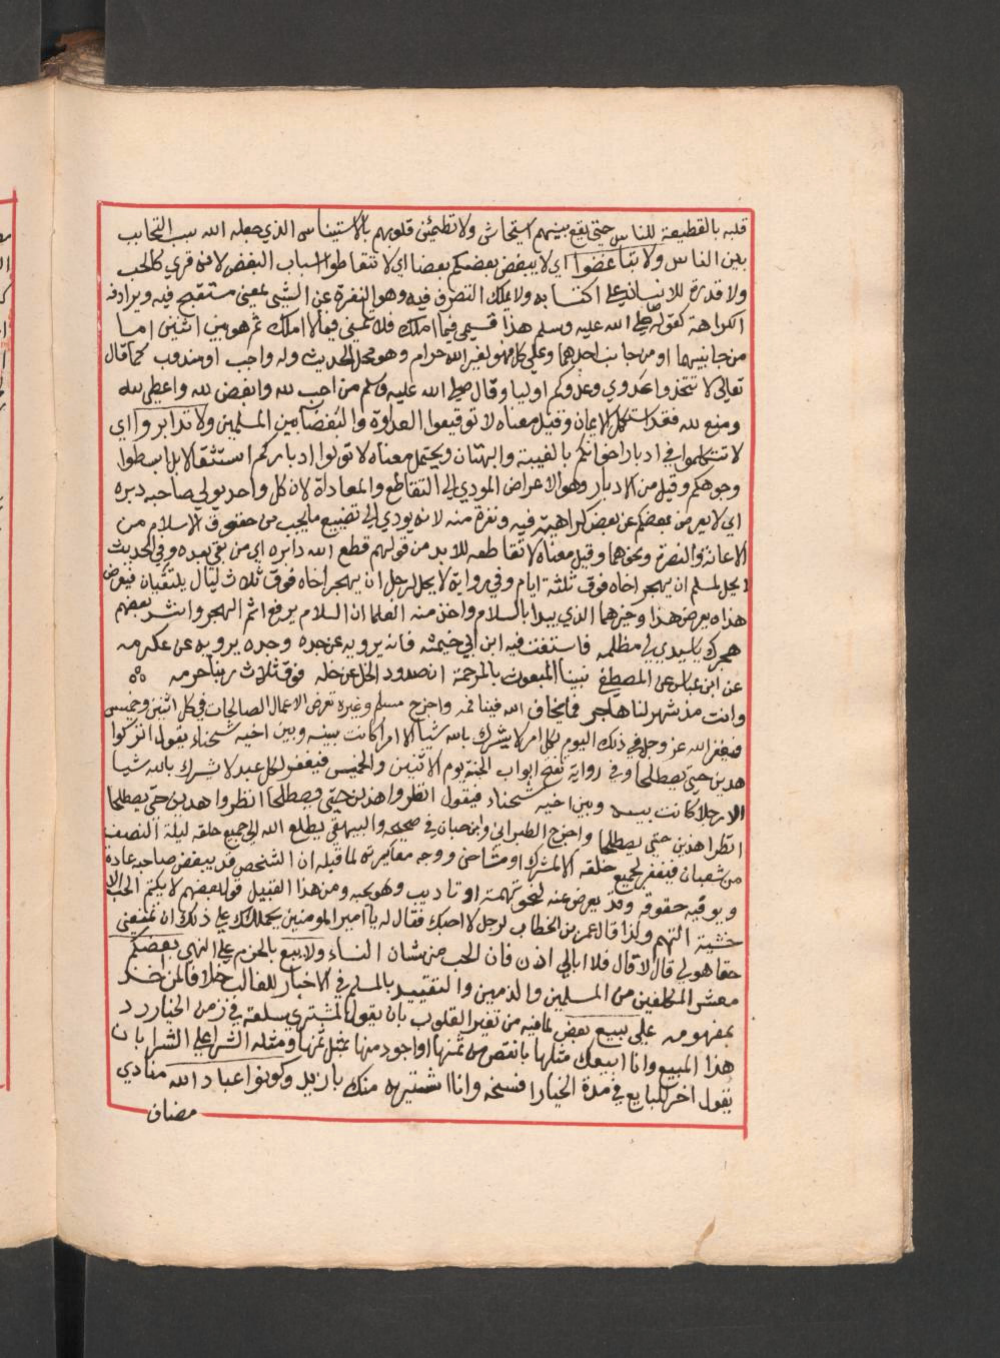 قلبه بالقطيعة للناس حتى يقع بينهم استيحاش ولا تطمئن قلوبهم بالاستيناس الذي جعله الله سبب التحابب
بين الناس ولا تباغضوا اي لا يبغض بعضكم بعضا اي لا تتعاطوا اسباب البغض لانه قهري كالحب
ولا قدرة للانسان على اكتسابه ولا يملك التصرف فيه وهو النفرة عن الشي لمعنى مستقبح فيه ويرادفه
الكراهة كقوله صلى الله عليه وسلم هذا قسمي فيما املك فلا تلمني فيما لا املك ثم هو بين اثنين اما
من جانبيهما او من جانب احدهما وعلى كل فهو لغير الله حرام وهو محل الحديث وله واجب او مندوب كما قال
تعالى لا تتخذوا عدوي وعدوكم اوليا وقال صلى الله عليه وسلم من احب لله وابغض لله واعطى لله
ومنع لله فقد استكمل الايمان وقيل معناه لا توقعوا العداوة والبغضا بين المسلمين ولا تدابروا اي
لا تتكلموا في ادبار اخوانكم بالغيبة والبهتان ويحتمل معناه لا تولوا ادباركم استثقالا بل ابسطوا
وجوهكم وقيل من الادبار وهو الاعراض المودي الى التقاطع والمعاداة لان كل واحد يولي صاحبه دبره
اي لا يعرض بعضكم عن بعض كراهية فيه ونفرة منه لانه يودي الى تضييع ما يجب من حقوق الاسلام من
الاعانة والنصرة ونحوهما وقيل معناه لا تقاطعه للابد من قولهم قطع الله دابره اي من بقي بعده وفي الحديث
لا يحل لمسلم ان يهجر اخاه فوق ثلثة ايام وفي رواية لا يحل لرجل ان يهجر اخاه فوق ثلاث ليال يلتقيان فيعرض
هذا ويعرض هذا وخيرهما الذي يبدا بالسلام واخذ منه العلما ان السلام يرفع اثم الهجر وانشد بعضهم
هجرك يا سيدي لي مظلمه فاستفت فيه ابن ابي خيثمه فانه يرويه عن جده وجده يرويه عن عكرمه
عن ابن عباس عن المصطفى نبينا المبعوث بالمرحمة ان صدود الخل عن خله فوق ثلاث ربنا حرمه
وانت مذ شهر لنا هاجر فما تخاف الله فينا فمه واخرج مسلم وغيره تعرض الاعمال الصالحات في كل اثنين وخميس
فيغفر الله عز وجل في ذلك اليوم لكل امر لا يشرك بالله شيا الا امرا كانت بينه وبين اخيه شحناء يقول اتركوا
هذين حتى يصطلحا وفي رواية تفتح ابواب الجنة يوم الاثنين والخميس فيغفر لكل عبد لا يشرك بالله شيا
الا رجلا كانت بينه وبين اخيه شحناء فيقول انظروا هذين حتى يصطلحا انظروا هذين حتى يصطلحا
انظرا هذين حتى يصطلحا واخرج الطبراني وابن حبان في صحيحه والبيهقي يطلع الله الى جميع خلقه ليلة النصف
من شعبان فيغفر لجميع خلقه الا لمشرك او مشاحن ووجه مغايرته لما قبله ان الشخص قد يبغض صاحبه عادة
ويوفيه حقوقه وقد يعرض عنه لنحو تهمة او تاديب وهو يحبه ومن هذا القبيل قول بعضهم لا يكتم الحب الا
خشية التهم وكذا قال عمر بن الخطاب لرجل لا احبك فقال له يا امير المومنين يحملك على ذلك ان تمنعني
حقا هو لي قال لا قال فلا ابالي اذن فان الحب من شان النساء ولا يبيع بالجزم على النهي بعضكم
معشر المكلفين من المسلمين والذميين والتقييد بالمسلم في الاخبار للغالب خلافا لمن اخذ
بمفهومه على بيع بعض لما فيه من تغير القلوب بان يقول لمشتري سلعة في زمن الخيار رد
هذا المبيع وانا ابيعك مثلها بانقص من ثمنها او اجود منها بمثل ثمنها ومثله الشرا على الشرا بان
يقول اخر للبايع في مدة الخيار افسخه وانا اشتريه منك بازيد وكونوا عباد الله منادي
مضاف